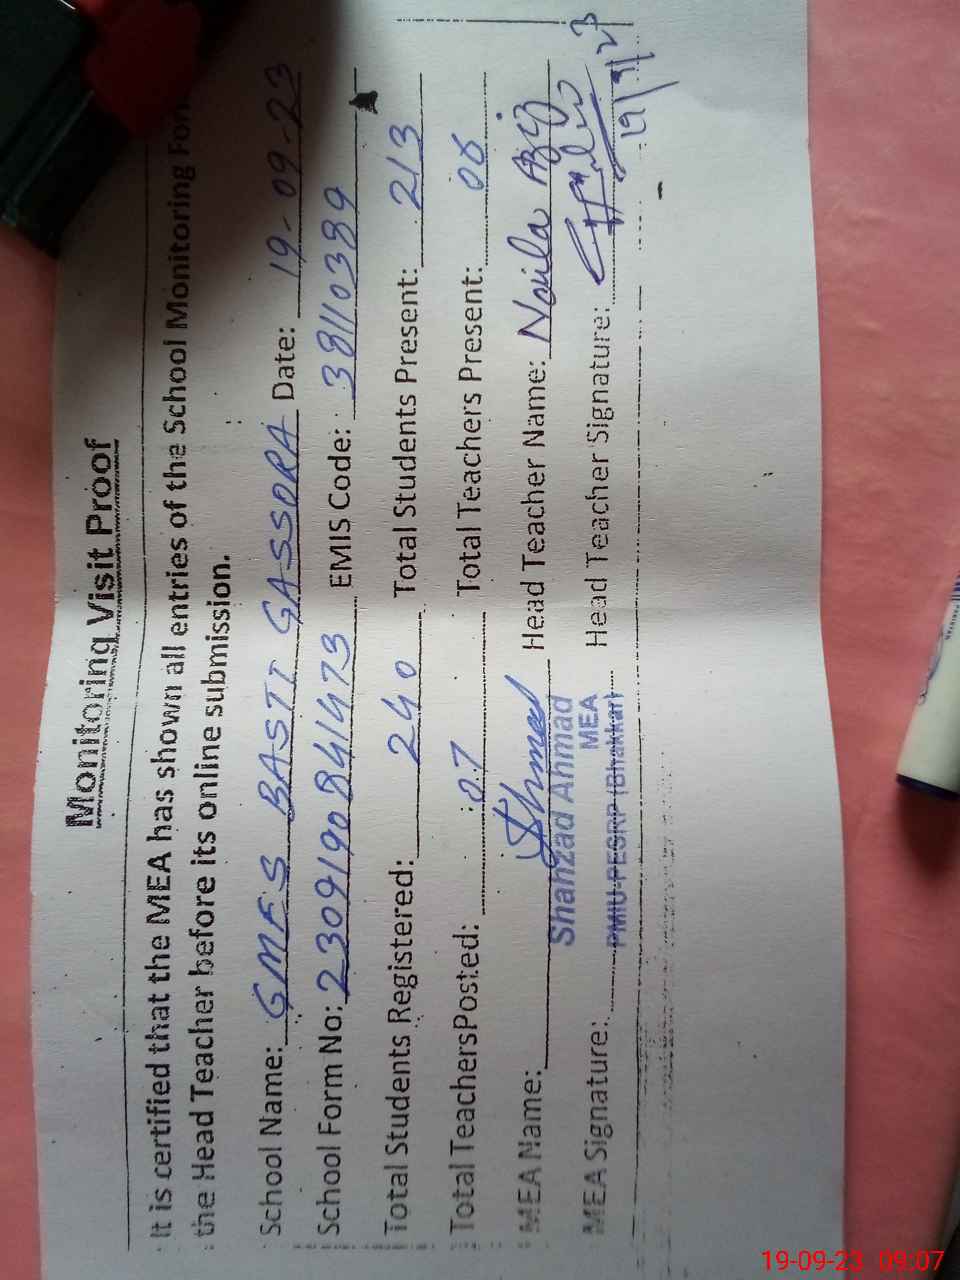 Monitoring Visit Proof
It is certified that the MEA has shown all entries of the School Monitoring Form
the Head Teacher before its online submission.
School Name: GMES BASTI GASSORA Date: 19-09-23
School Form No: 2309190841473 EMIS Code: 38110389
Total Students Registered: 240 Total Students Present: 213
Total TeachersPosted: 07 Total Teachers Present: 06
MEA Name: Head Teacher Name: Naila Aziz
Shahzad Ahmad
MEA
MEA Signature: PMIU-PESRP (Bhakkar) Head Teacher Signature:
19/9/23
19-09-23 09:07